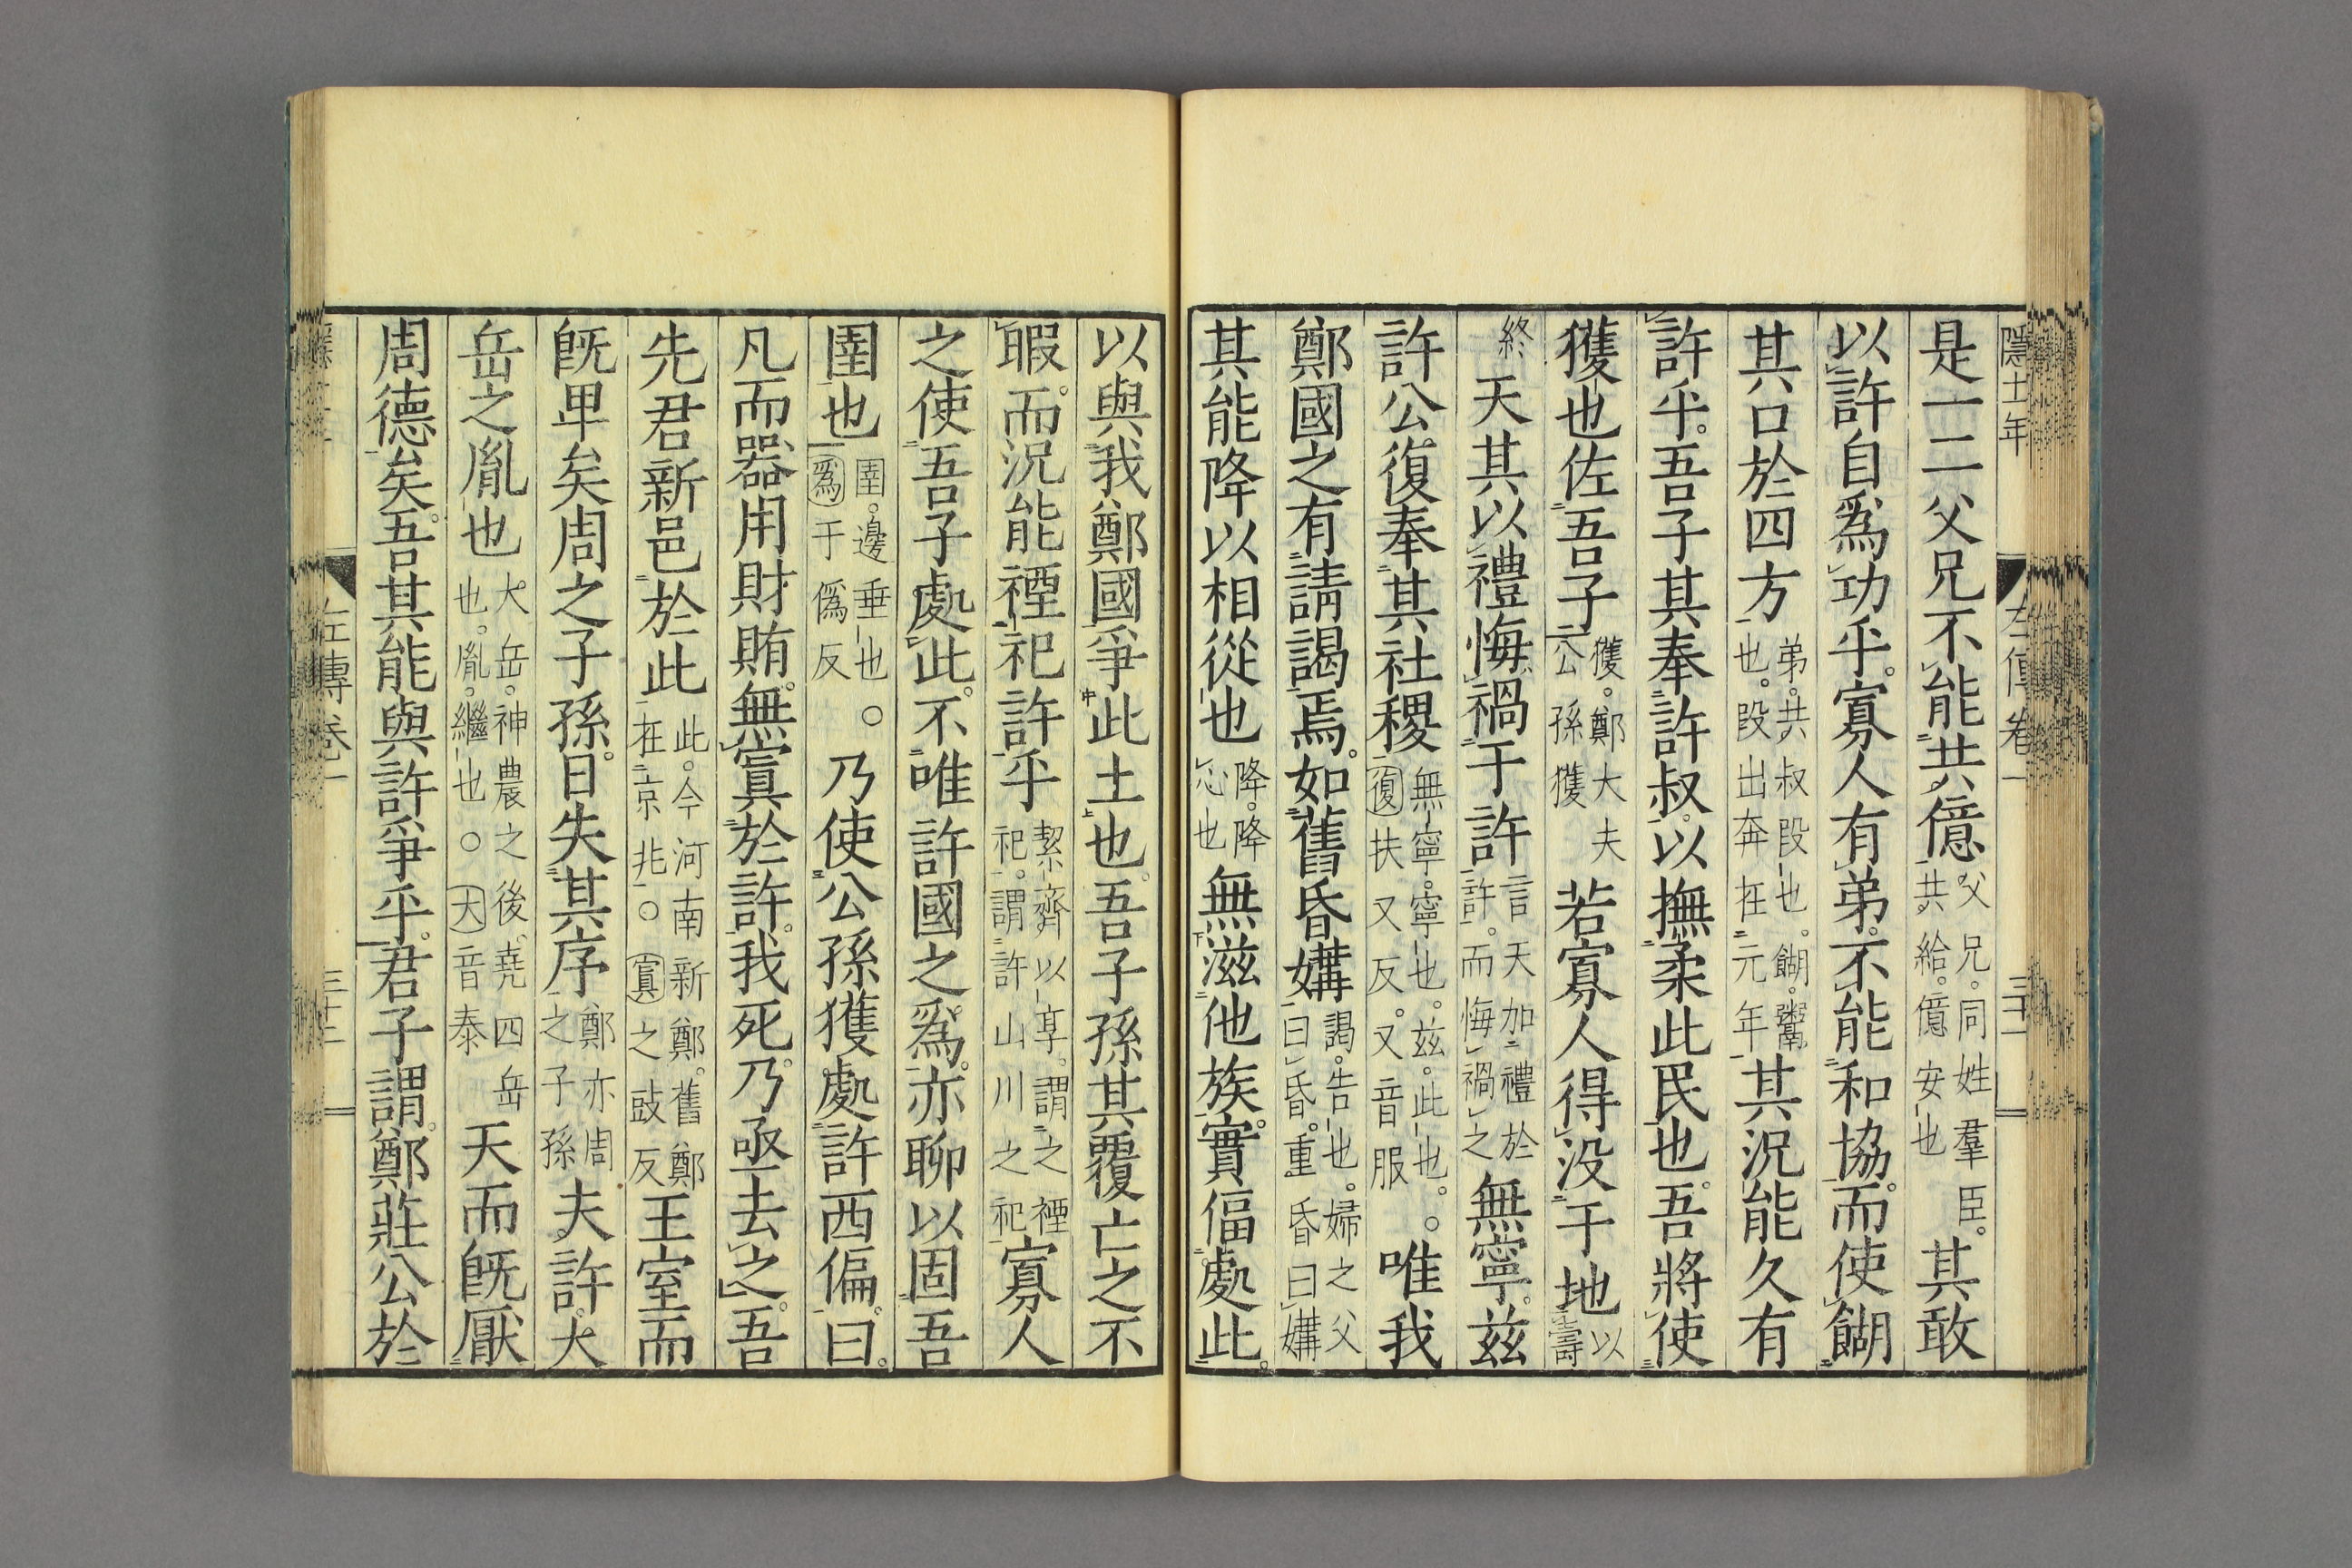 隱十一年
左傳卷一
三十一
是一二父兄不能共億父兄。同姓羣臣。共。給。億安也其敢
以許自爲功乎。寡人有弟。不能和協。而使餬
其口於四方弟。共叔段也。餬。鬻也。段出奔在元年其況能久有
許乎。吾子其奉許叔。以撫柔此民也。吾將使
獲也佐吾子獲。鄭大夫公孫獲若寡人得沒于地以壽
終天其以禮悔禍于許言天加禮於許。而悔禍之無寧。茲
許公復奉其社稷無寧。寧也。茲。此也。。復扶又反。又音服唯我
鄭國之有請謁焉。如舊昏媾謁。告也。婦之父曰昏。重昏曰媾
其能降以相從也降。降心也無滋他族。實偪處此。
以與我鄭國爭此土也。吾子孫其覆亡之不
暇。而況能禋祀許乎絜齊以享。謂之禋祀。謂許山川之祀寡人
之使吾子處此。不唯許國之爲。亦聊以固吾
圉也圉。邊垂也。○爲于僞反乃使公孫獲處許西偏。曰。
凡而器用財賄。無寘於許。我死。乃亟去之。吾
先君新邑於此此。今河南新鄭。舊鄭在京兆。○寘之豉反王室而
旣卑矣周之子孫。日失其序鄭亦周之子孫夫許。大
岳之胤也大岳。神農之後、堯四岳也。胤。繼也。○大音泰天而旣厭
周德矣。吾其能與許爭乎。君子謂。鄭莊公於
左傳卷一
三十二